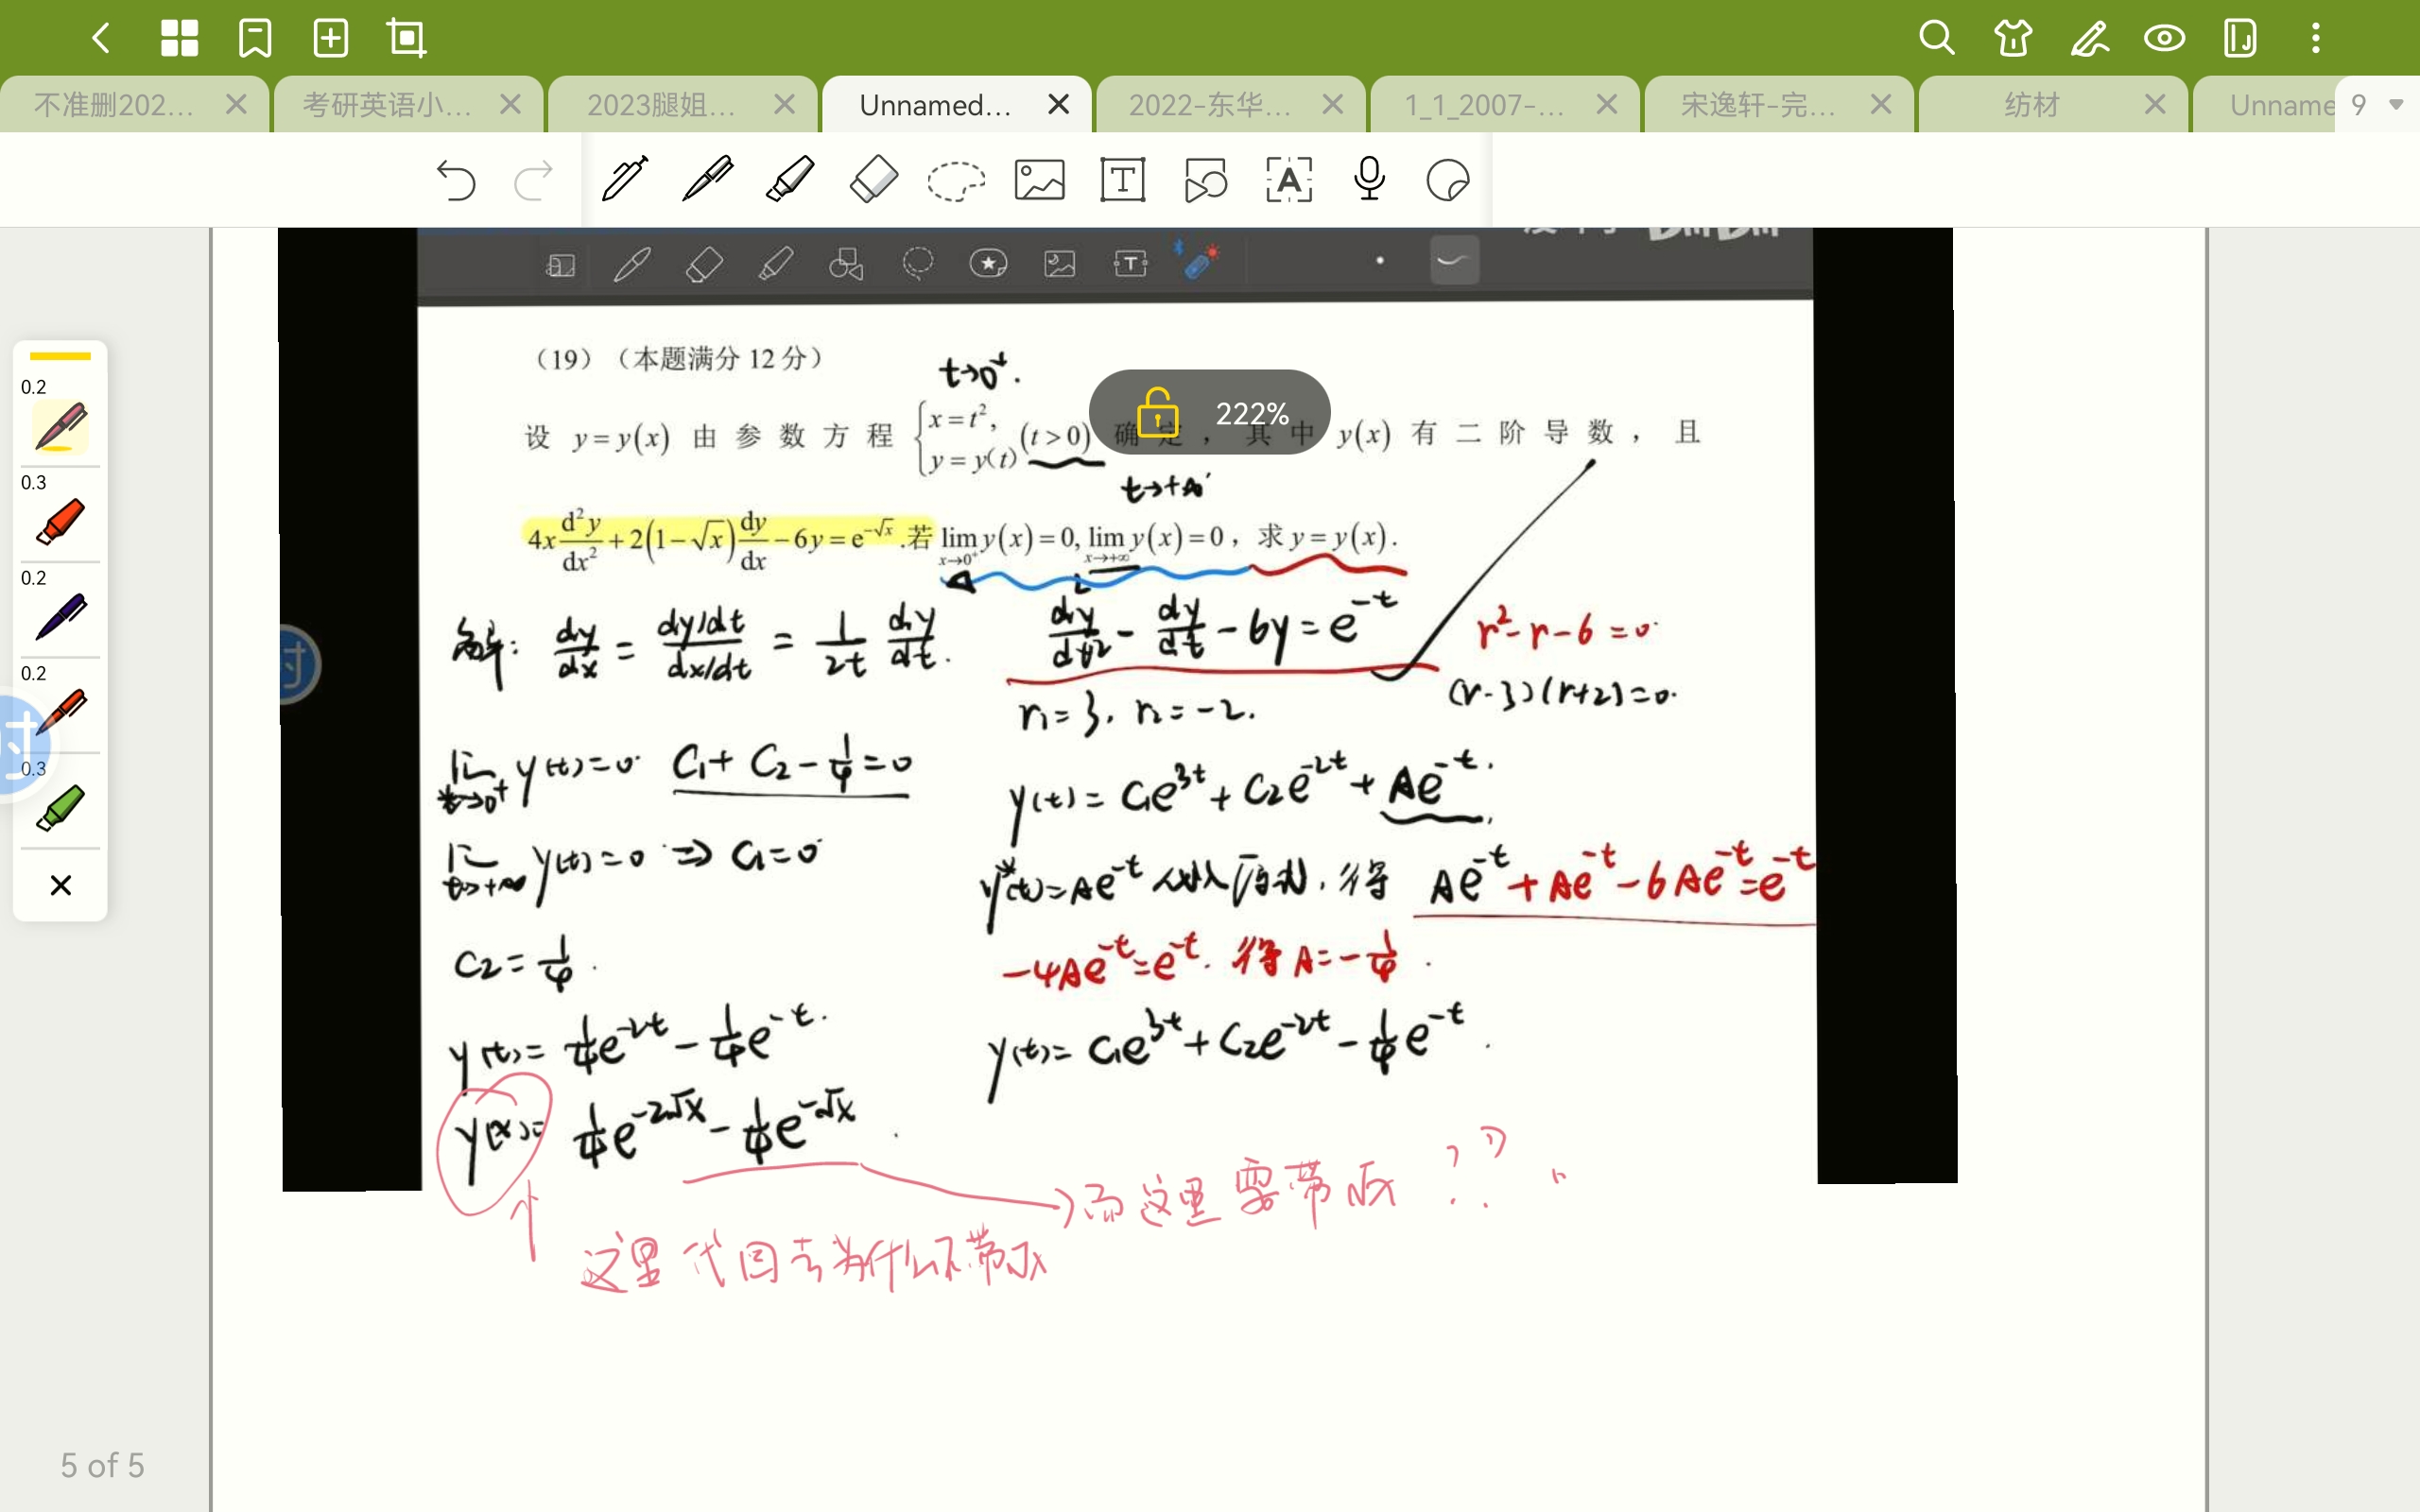 不准删202...
考研英语小...
2023腿姐...
Unnamed...
2022-东华...
1_1_2007-...
宋逸轩-完...
纺材
Unname
9
0.2
0.3
0.2
0.2
0.3
222%
(19)(本题满分 12 分)
t→0⁺.
设 y=y(x) 由参数方程 {x=t², y=y(t) (t>0) 确定,其中 y(x) 有二阶导数,且
t→+∞
4x d²y/dx² + 2(1-√x) dy/dx - 6y = e^(-√x). 若 lim_(x→0⁺) y(x)=0, lim_(x→+∞) y(x)=0, 求 y=y(x).
解: dy/dx = (dy/dt)/(dx/dt) = 1/2t dy/dt.
d²y/dt² - dy/dt - 6y = e^(-t)
r²-r-6=0
(r-3)(r+2)=0.
r₁=3, r₂=-2.
lim_(t→0⁺) y(t)=0 C₁+C₂-1/4=0
y(t)=C₁e^(3t)+C₂e^(-2t)+Ae^(-t).
lim_(t→+∞) y(t)=0 ⇒ C₁=0
y*(t)=Ae^(-t) 代入原式,得 Ae^(-t)+Ae^(-t)-6Ae^(-t)=e^(-t)
C₂=1/4.
-4Ae^(-t)=e^(-t). 得 A=-1/4.
y(t)=1/4e^(-2t)-1/4e^(-t).
y(t)=C₁e^(3t)+C₂e^(-2t)-1/4e^(-t).
y(x)=1/4e^(-2√x)-1/4e^(-√x).
而这里要带√x ??
这里代回去为什么不带√x
5 of 5